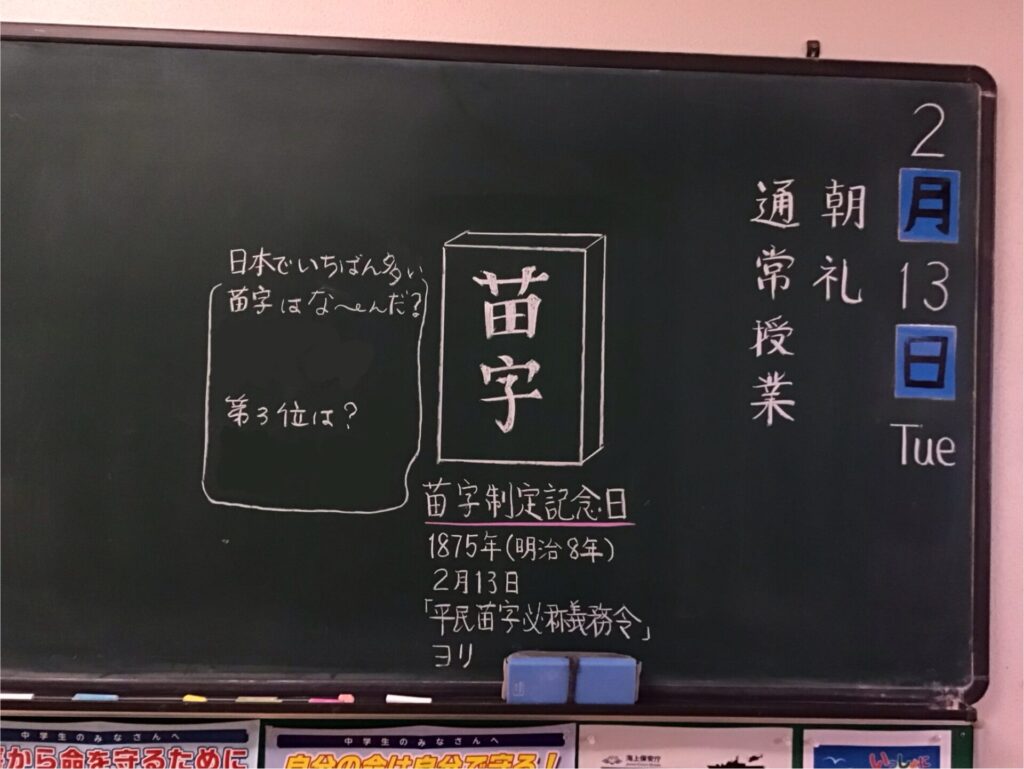 2
月
13
日
Tue
朝礼
通常授業
苗字
日本でいちばん多い
苗字はな〜んだ?
第3位は?
苗字制定記念日
1875年(明治8年)
2月13日
「平民苗字必称義務令」
ヨリ
中学生のみなさんへ
から命を守るために
中学生のみなさんへ
自分の命は自分で守る!
海上保安庁